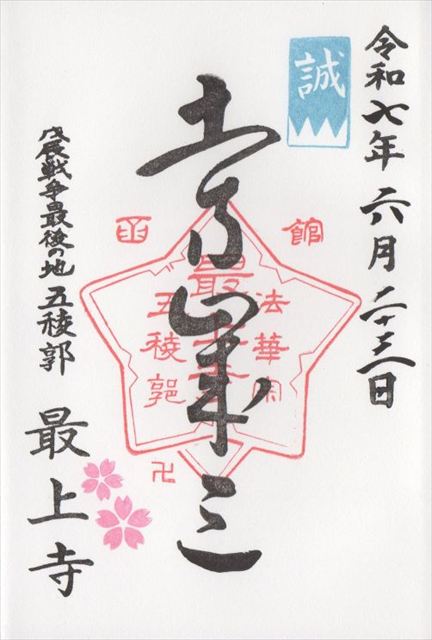 令和七年六月二十三日
誠
土方歳三
函館
法華宗
最上寺
五稜郭
卍
戊辰戦争最後の地 五稜郭
最上寺